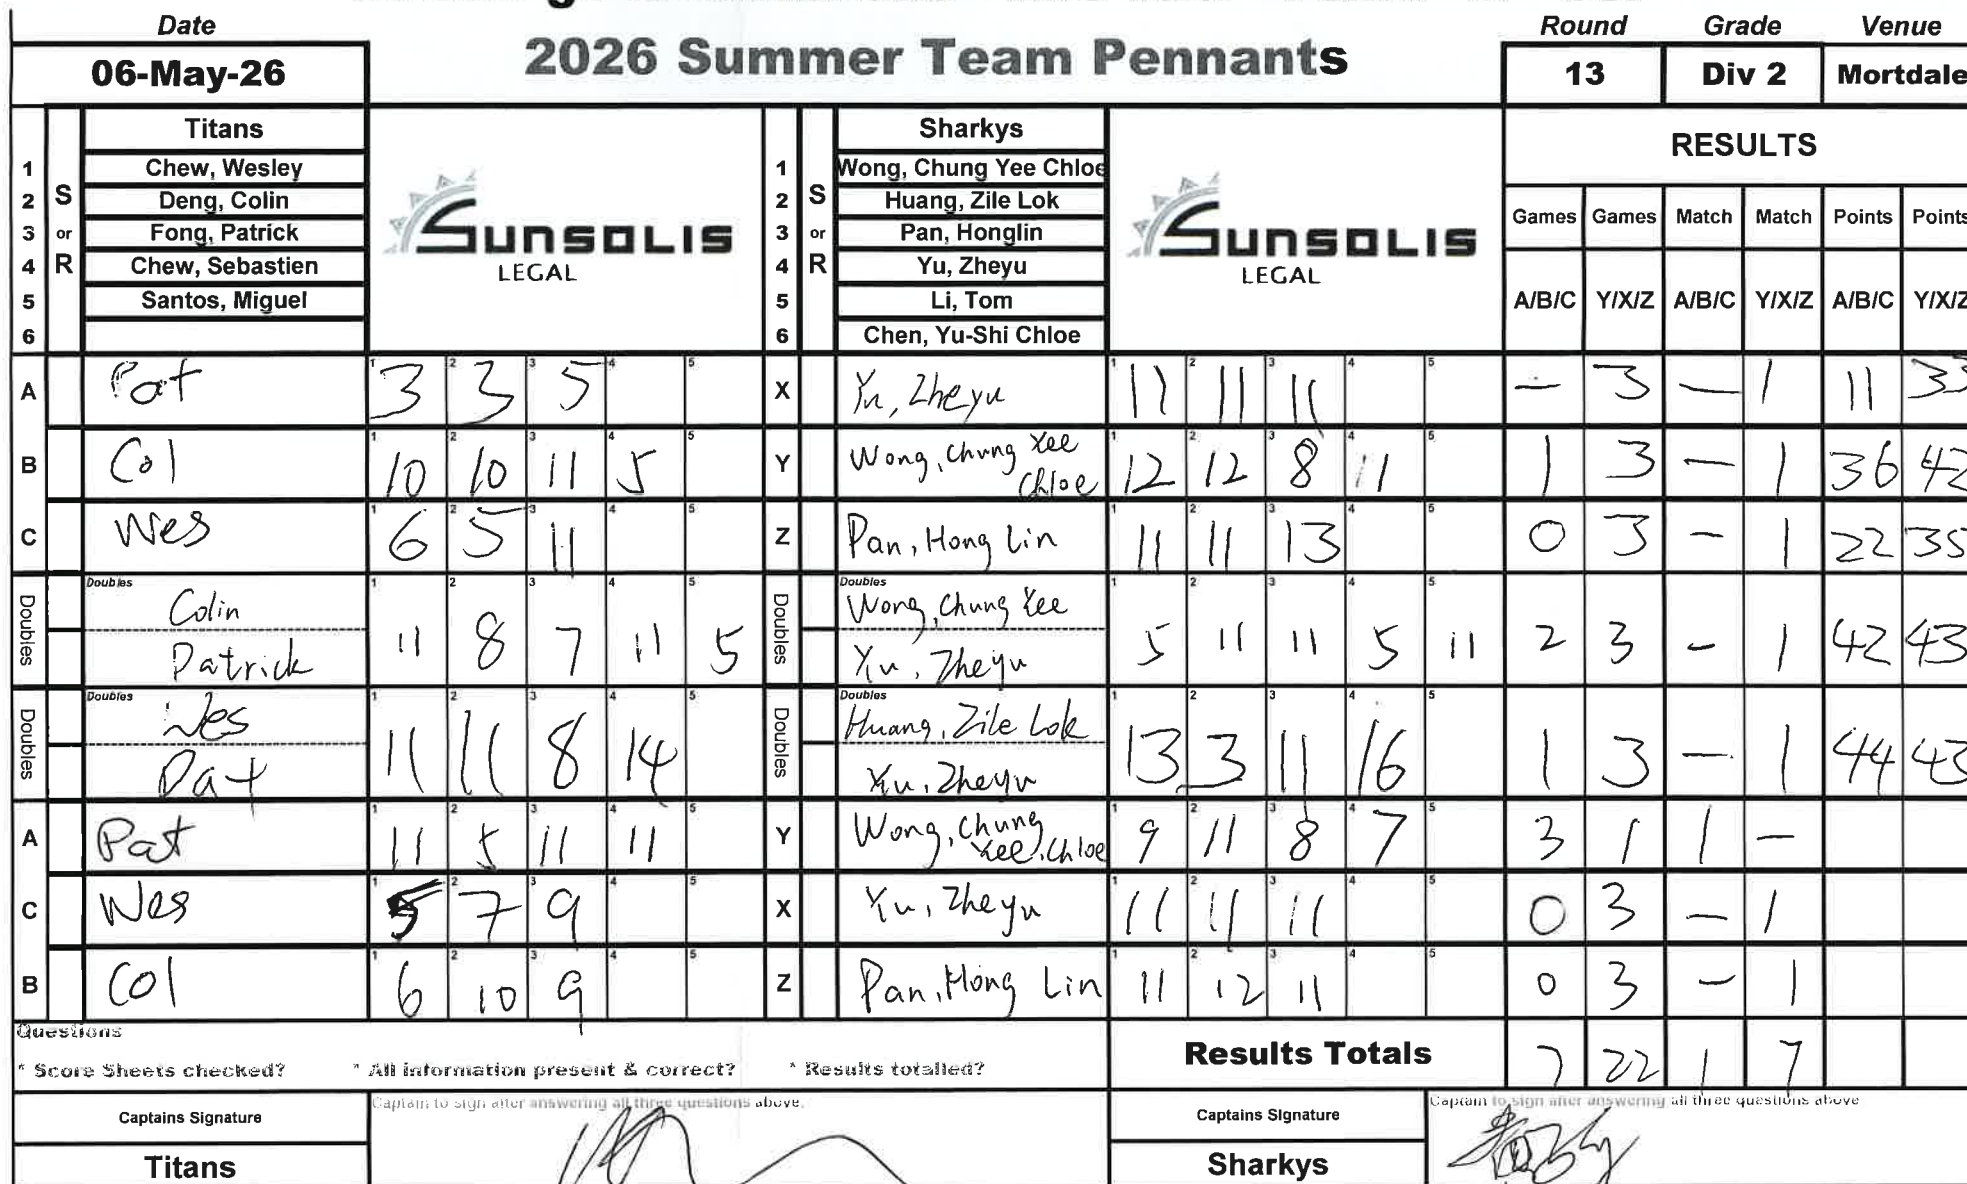 Date
2026 Summer Team Pennants
Round Grade Venue
06-May-26
13 Div 2 Mortdale
Titans
Sharkys
RESULTS
S or R
1 Chew, Wesley
2 Deng, Colin
3 Fong, Patrick
4 Chew, Sebastien
5 Santos, Miguel
6
SUNSOLIS
LEGAL
S or R
1 Wong, Chung Yee Chloe
2 Huang, Zile Lok
3 Pan, Honglin
4 Yu, Zheyu
5 Li, Tom
6 Chen, Yu-Shi Chloe
SUNSOLIS
LEGAL
Games Games Match Match Points Points
A/B/C Y/X/Z A/B/C Y/X/Z A/B/C Y/X/Z
A Pat 3 3 5 X Yu, Zheyu 11 11 11 — 3 — 1 11 33
B Col 10 10 11 5 Y Wong, Chung Yee Chloe 12 12 8 11 1 3 — 1 36 42
C Wes 6 5 11 Z Pan, Hong Lin 11 11 13 0 3 - 1 22 35
Doubles Colin Patrick 11 8 7 11 5 Doubles Wong, Chung Yee Yu, Zheyu 5 11 11 5 11 2 3 - 1 42 43
Doubles Wes Pat 11 11 8 14 Doubles Huang, Zile Lok Yu, Zheyu 13 3 11 16 1 3 — 1 44 43
A Pat 11 5 11 11 Y Wong, Chung Yee, Chloe 9 11 8 7 3 1 1 —
C Wes 5 7 9 X Yu, Zheyu 11 11 11 0 3 — 1
B Col 6 10 9 Z Pan, Hong Lin 11 12 11 0 3 - 1
Questions
* Score Sheets checked? * All information present & correct? * Results totalled?
Results Totals 7 22 1 7
Captains Signature
Captain to sign after answering all three questions above.
Captains Signature
Captain to sign after answering all three questions above
Titans
Sharkys